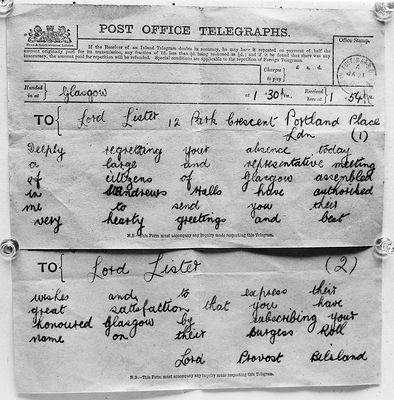 POST OFFICE TELEGRAPHS.
If the Receiver of an Inland Telegram doubts its accuracy, he may have it repeated on payment of half the
amount originally paid for its transmission, any fraction of 1d. less than ½d. being reckoned as ½d.; and if it be found that there was any
inaccuracy, the amount paid for repetition will be refunded. Special conditions are applicable to the repetition of Foreign Telegrams.
Office Stamp.
Charges to pay £ s. d.
Handed in at Glasgow at 1·30 p.m. Received here at 1·54 p.m.
TO Lord Lister 12 Park Crescent Portland Place
Ldn (1)
Deeply regretting your absence today
a large and representative meeting
of citizens of Glasgow assembled
in St Andrews Halls have authorised
me to send you their
very hearty greetings and best
N.B.—This Form must accompany any inquiry made respecting this Telegram.
TO Lord Lister (2)
wishes and to express their
great satisfaction that you have
honoured Glasgow by subscribing your
name on their Burgess Roll
Lord Provost Bilsland
N.B.—This Form must accompany any inquiry made respecting this Telegram.